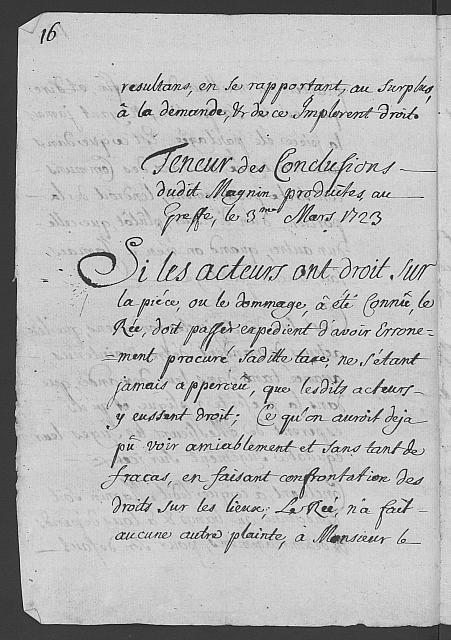 16
resultans, en se rapportant, au surplus,
â la demande, &r de ce Implorent droit.
Teneur des Conclusions
dudit Magnin produites, au
Greffe, le 3.me Mars 1723
Si les acteurs ont droit sur
la pièce, ou le dommage, â été Connû, le
Rée, doit passer expedient d'avoir Errone-
=ment procuré sa ditte taxe, ne s'étant
jamais apperceu, que lesdits acteurs
y eussent droit; Ce qu'on auroit deja
pû voir amiablement et sans tant de
fracas, en faisant confrontation des
droits sur les lieux; Le Rée, n'a fait
aucune autre plainte, a Monsieur le